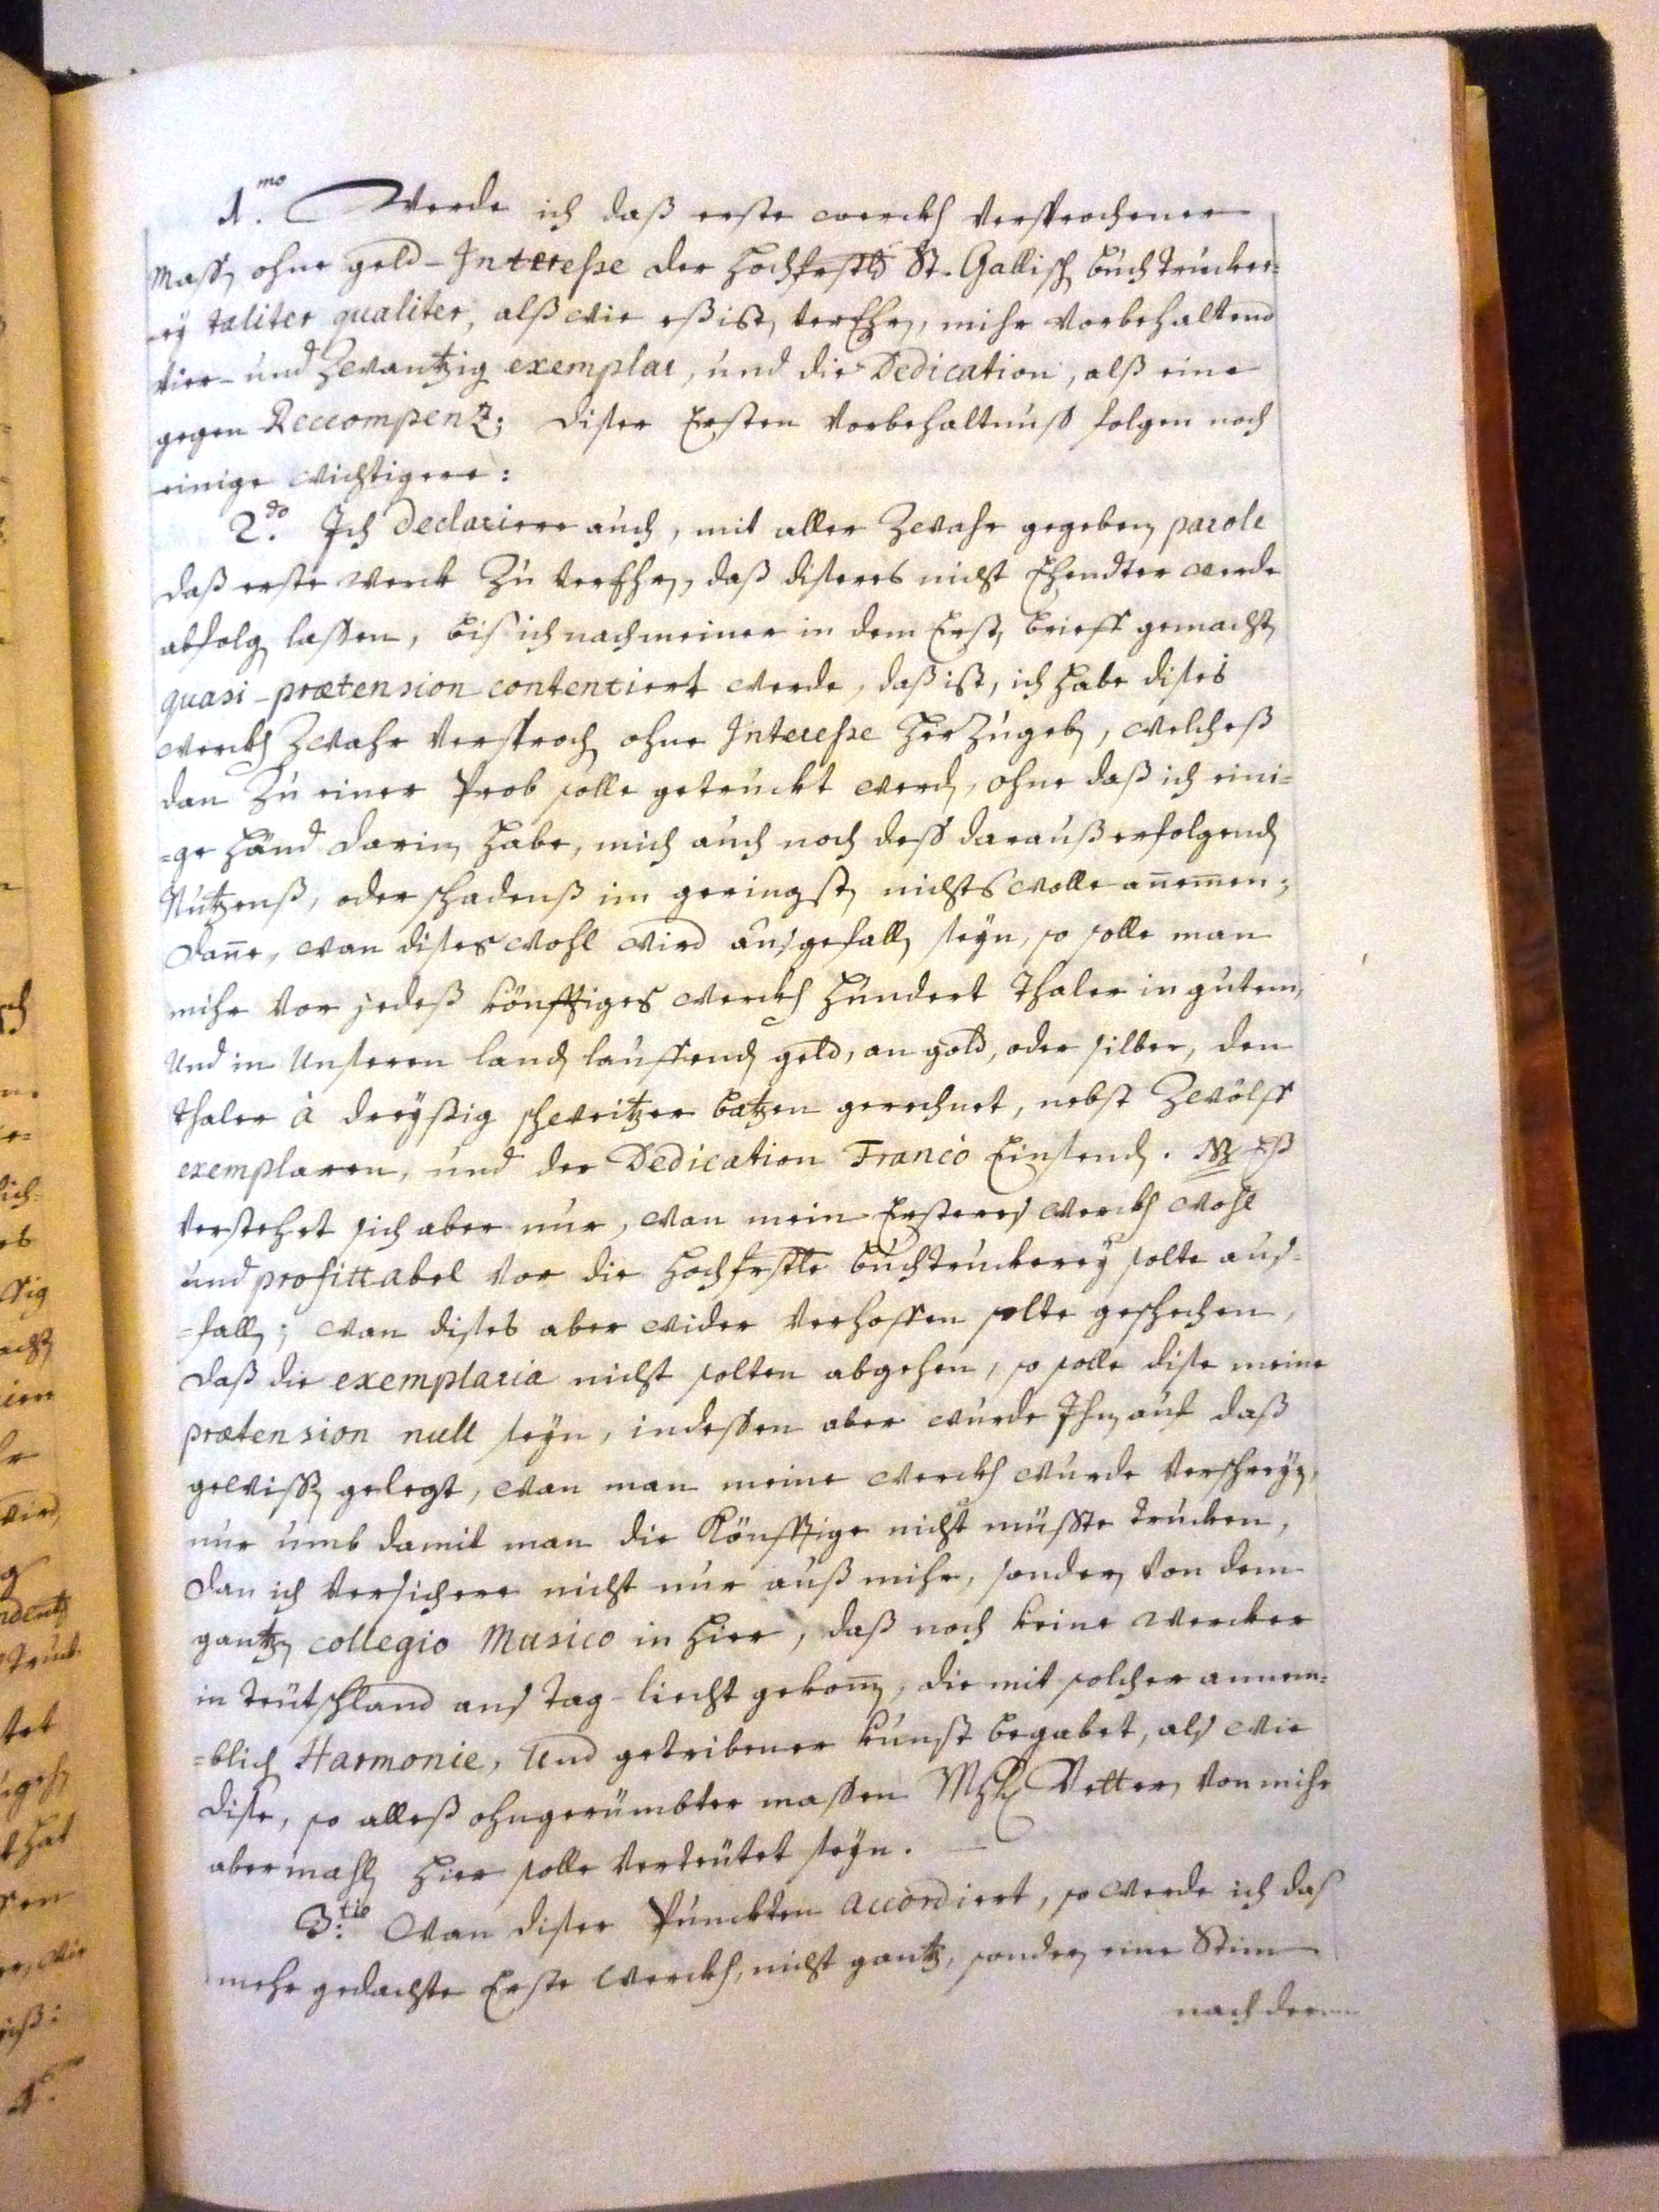 1.mo Werde ich daß erste werckh versprochener
massen ohne geld-Interesse der Hochfrstl St. Gallisch Buchtrucker=
eÿ taliter qualiter, alß wie eß ist, verEhren, mihr vorbehaltend
vier- und zwantzig exemplar, und die Dedication, alß eine
gegen Reccompenz; diser Ersten vorbehaltnuss folgen noch
einige wichtigere:
2.do Ich declariere auch, mit aller zwahr gegeben parole
daß erste werck zu verEhren, daß diseres nicht Ehendter werde
abfolgen lassen, biß ich nach meiner in dem Ersten brieff gemachten
quasi-prætension contentiert werde, daß ist, ich habe dises
werckh zwahr versprochen ohne Interesse herzugeben, welcheß
dan zu einer Prob solle getruckt werden, ohne daß ich eini=
=ge händ darin habe, mich auch noch dess darauß erfolgenden
Nutzenß, oder schadenß im geringsten nichts wolle annemen;
dane, wan dises wohl wird ausgefallen seyn, so solle man
mihr vor jedeß könfftiges werckh hundert thaler in gutem,
und in unseren landen lauffenden geld, an gold, oder silber, den
thaler à dreÿssig schweitzer batzen gerechnet, nebst zwölff
exemplaren, und der Dedication Franco Einsenden. NB Eß
verstehet sich aber nur, wan mein Ersteres werckh wohl
und profittabel vor die Hochfrstle buchtruckereÿ solte aus=
=fallen; wan dises aber wider verhoffen solte geschehen,
daß die exemplaria nicht solten abgehen, so solle dise meine
prætension null seyn, indessen aber wurde Ihnen auf daß
gewissen gelegt, wan man meine werckh wurde verschreÿen,
nur umb damit man die Könfftige nicht müsste trucken,
dan ich versichere nicht nur auß mihr, sonderen von dem
gantzen collegio Musico in hier, daß noch keine wercker
in teutschland ans tag-liecht gekommen, die mit solcher annem=
=blichen Harmonie, und getribener kunst begabet, als wie
dise, so alleß ohngerümbter massen Vetteren von mihr
abermahlen hier solle verdeutet seyn.
3.tio Wan diser Punckten accordiert, so werde ich das
mehr gedachte Erste werckh, nicht gantz, sonderen eine Stim
nach deren